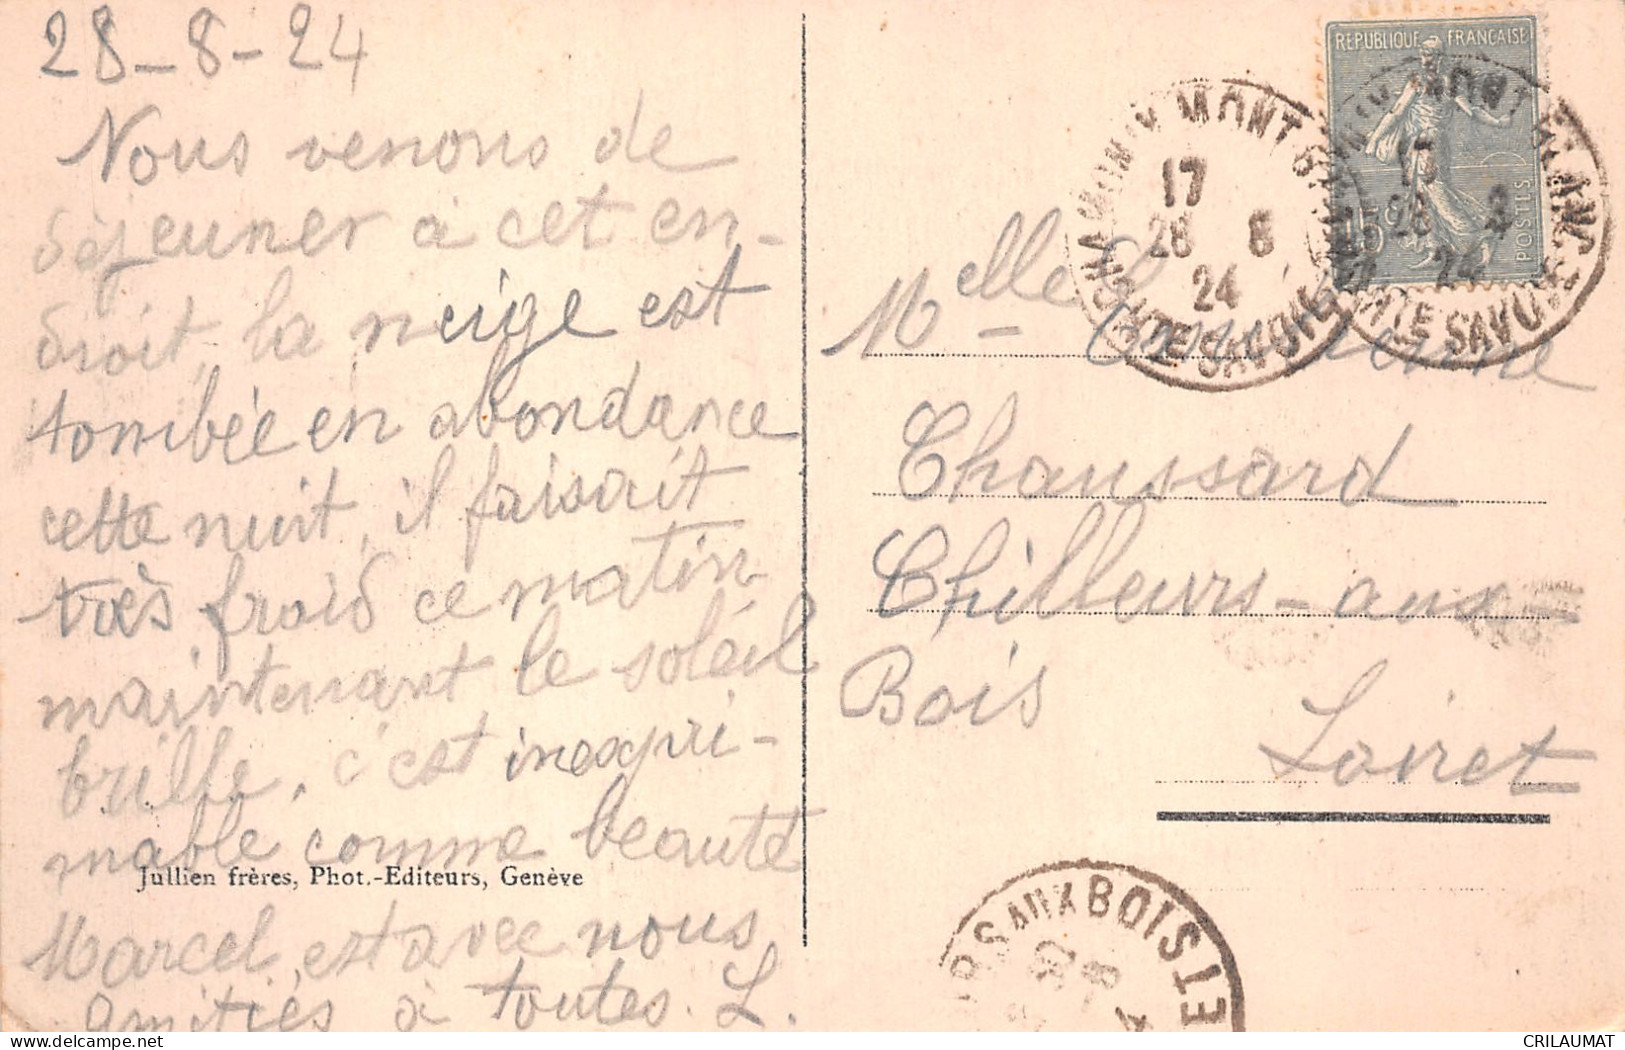 28-8-24
Nous venons de
déjeuner à cet en-
droit, la neige est
tombée en abondance
cette nuit, il faisait
très froid ce matin
maintenant le soleil
brille, c'est inexpri-
mable comme beauté
Jullien frères, Phot.-Editeurs, Genève
Marcel est avec nous
Amitiés à toutes. L.
REPUBLIQUE FRANÇAISE
15c
POSTES
CHAMONIX MONT BLANC
17
28 8
24
HTE SAVOIE
CHAMONIX MONT BLANC
28 8
24
HTE SAVOIE
Melle
Chaussard
Chilleurs-aux
Bois
Loiret
RS AUX BOIS
LOIRET
CRILAUMAT